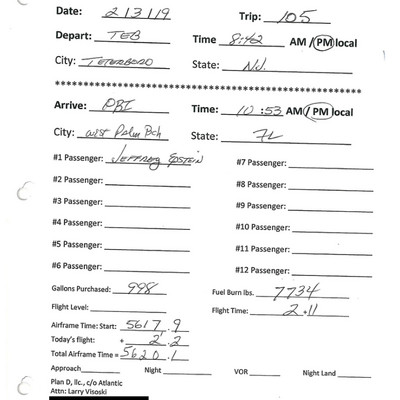 Date: 2/3/19 Trip: 105
Depart: TEB Time 8:42 AM / PM local
City: TETERBORO State: NJ.
****************************************************
Arrive: PBI Time: 10:53 AM / PM local
City: West Palm Bch State: FL
#1 Passenger: Jeffrey Epstein #7 Passenger:
#2 Passenger: #8 Passenger:
#3 Passenger: #9 Passenger:
#4 Passenger: #10 Passenger:
#5 Passenger: #11 Passenger:
#6 Passenger: #12 Passenger:
Gallons Purchased: 998 Fuel Burn lbs. 7734
Flight Level: Flight Time: 2.11
Airframe Time: Start: 5617.9
Today's flight: + 2.2
Total Airframe Time = 5620.1
Approach Night VOR Night Land
Plan D, llc., c/o Atlantic
Attn: Larry Visoski